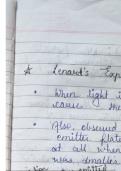 ★ Lenard's Exp
• When light i
cause the
• Also, observed
emitter plate
at all when
was smaller